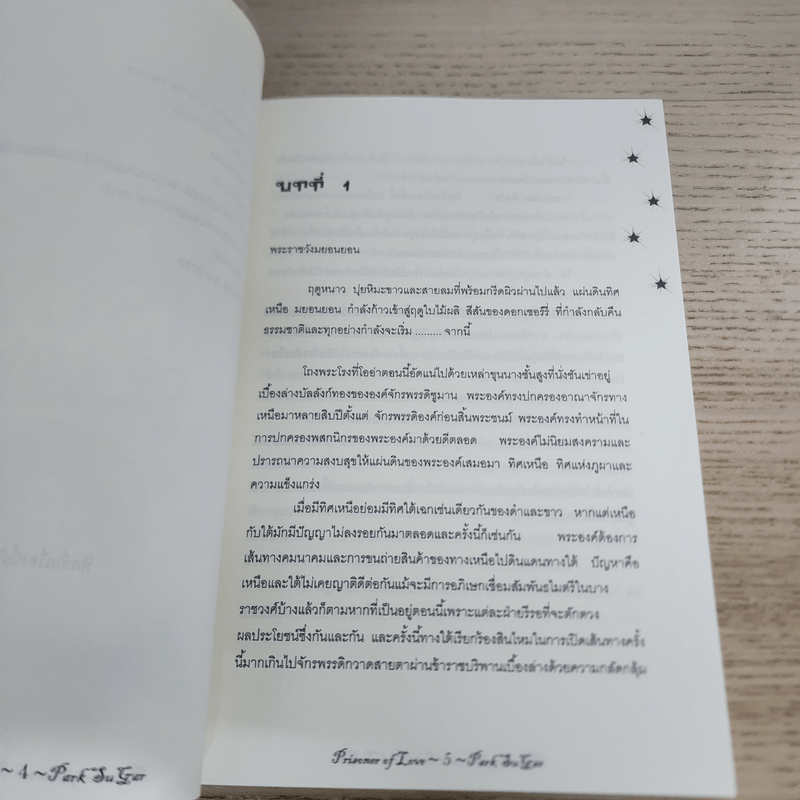 บทที่ 1
พระราชวังมยอนยอน
ฤดูหนาว ปุยหิมะขาวและสายลมที่พร้อมกรีดผิวผ่านไปแล้ว แผ่นดินทิศ
เหนือ มยอนยอน กำลังก้าวเข้าสู่ฤดูใบไม้ผลิ สีสันของดอกเชอร์รี่ ที่กำลังกลับคืน
ธรรมชาติและทุกอย่างกำลังจะเริ่ม ......... จากนี้
โถงพระโรงที่โออ่าตอนนี้อัดแน่นไปด้วยเหล่าขุนนางชั้นสูงที่นั่งชันเข่าอยู่
เบื้องล่างบัลลังก์ทองขององค์จักรพรรดิซูมาน พระองค์ทรงปกครองอาณาจักรทาง
เหนือมาหลายสิบปีตั้งแต่ จักรพรรดิองค์ก่อนสิ้นพระชนม์ พระองค์ทรงทำหน้าที่ใน
การปกครองพสกนิกรของพระองค์มาด้วยดีตลอด พระองค์ไม่นิยมสงครามและ
ปรารถนาความสงบสุขให้แผ่นดินของพระองค์เสมอมา ทิศเหนือ ทิศแห่งภูผาและ
ความแข็งแกร่ง
เมื่อมีทิศเหนือย่อมมีทิศใต้เฉกเช่นเดียวกันของดำและขาว หากแต่เหนือ
กับใต้มักมีปัญญาไม่ลงรอยกันมาตลอดและครั้งนี้ก็เช่นกัน พระองค์ต้องการ
เส้นทางคมนาคมและการขนถ่ายสินค้าของทางเหนือไปดินแดนทางใต้ ปัญหาคือ
เหนือและใต้ไม่เคยญาติดีต่อกันแม้จะมีการอภิเษกเชื่อมสัมพันธไมตรีในบาง
ราชวงศ์บ้างแล้วก็ตามหากที่เป็นอยู่ตอนนี้เพราะแต่ละฝ่ายรีรอที่จะตักตวง
ผลประโยชน์ซึ่งกันและกัน และครั้งนี้ทางใต้เรียกร้องสินไหมในการเปิดเส้นทางครั้ง
นี้มากเกินไปจักรพรรดิกวาดสายตาผ่านข้าราชบริพานเบื้องล่างด้วยความกลัดกลุ้ม
Prisoner of Love ~ 5 ~ Park Su Gar
~ 4 ~ Park Su Gar